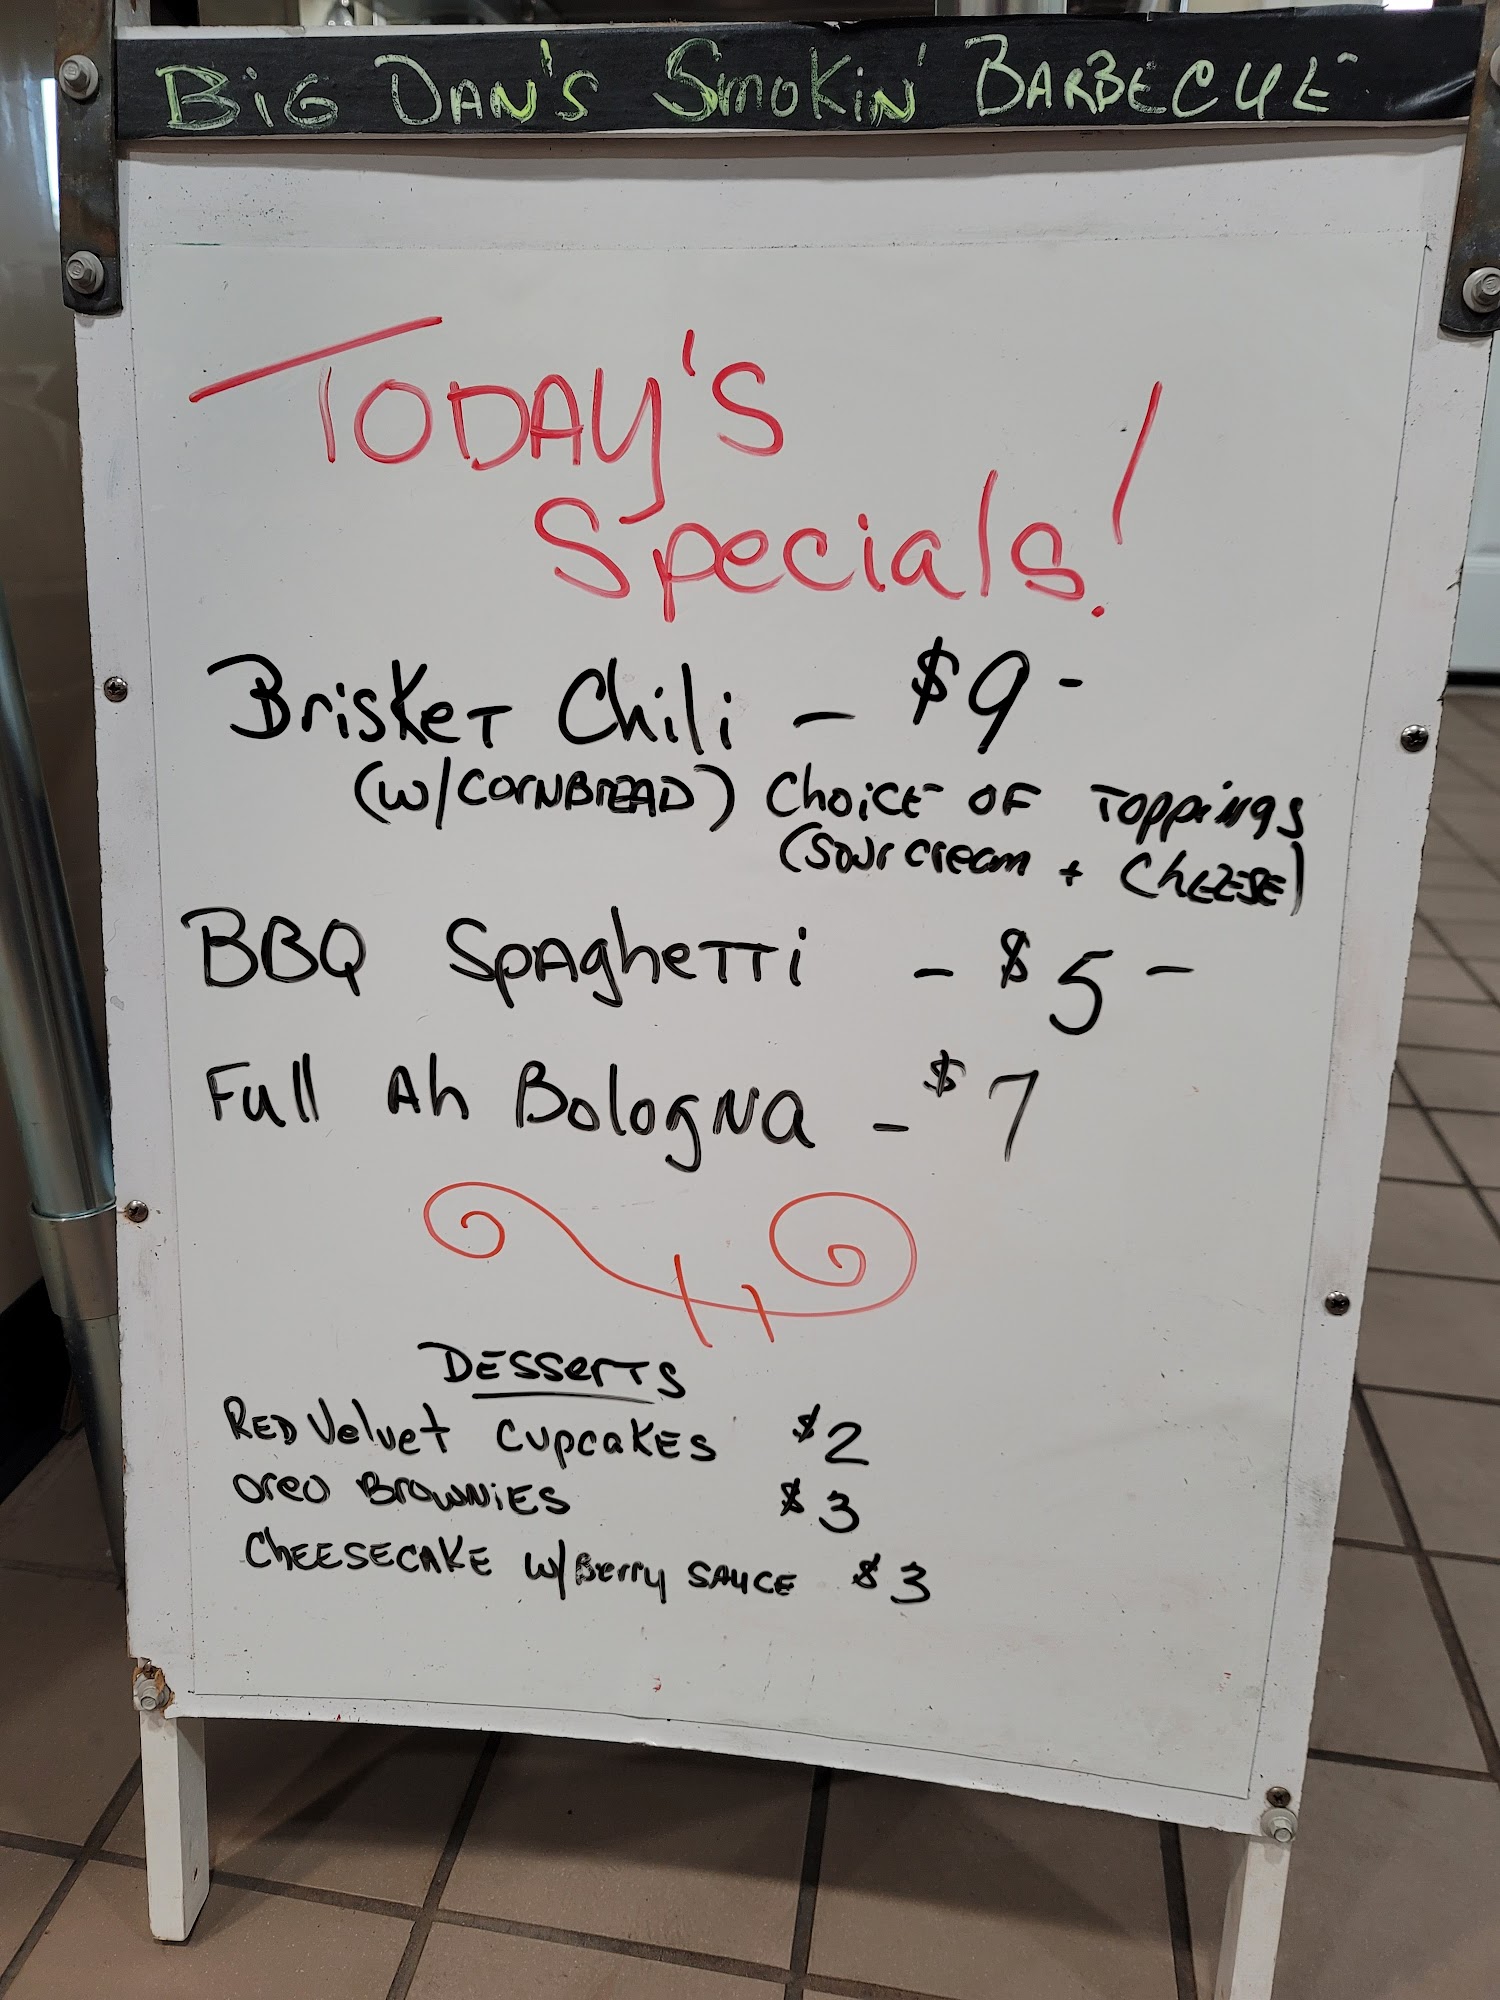 BiG DAN'S SmoKiN' BARBECUE
TODAY'S
Specials!
BrisKeT Chili - $9 -
(w/CORNBREAD) ChoiCE OF TOppiNgs
(Sour cream + ChEESE)
BBQ SpAgheTTi - $5 -
Full Ah BologNa - $7
DESSerTS
RED Velvet CupcaKES $2
Oreo BrowNiES $3
ChEESECAKE w/Berry SAUCE $3